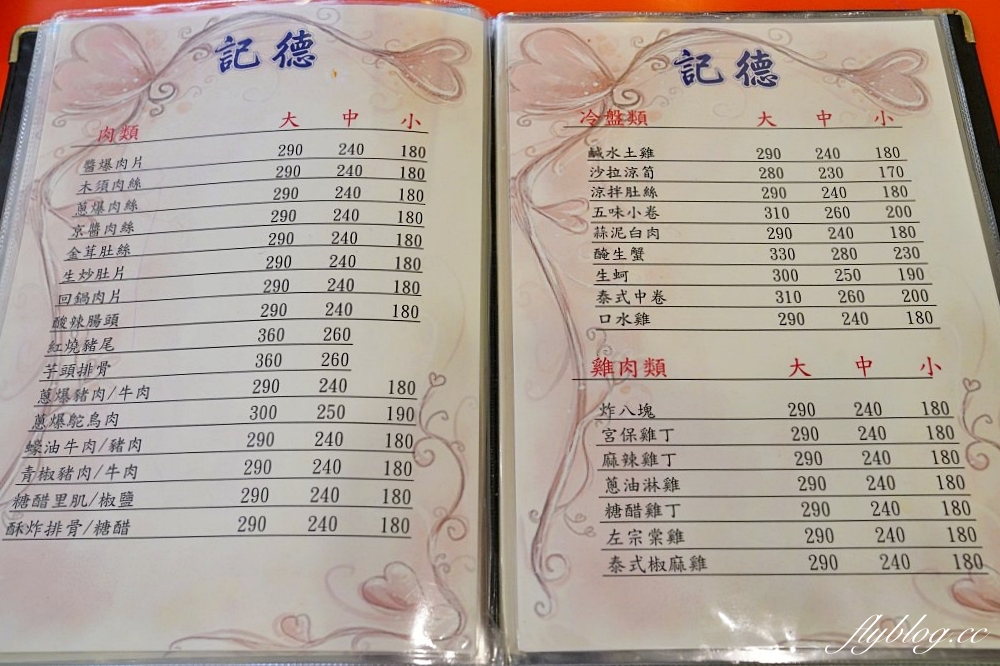 記德
肉類 大 中 小
醬爆肉片 290 240 180
木須肉絲 290 240 180
蔥爆肉絲 290 240 180
京醬肉絲 290 240 180
金茸肚絲 290 240 180
生炒肚片 290 240 180
回鍋肉片 290 240 180
酸辣腸頭 290 240 180
紅燒豬尾 360 260
芋頭排骨 360 260
蔥爆豬肉/牛肉 290 240 180
蔥爆鴕鳥肉 300 250 190
蠔油牛肉/豬肉 290 240 180
青椒豬肉/牛肉 290 240 180
糖醋里肌/椒鹽 290 240 180
酥炸排骨/糖醋 290 240 180
記德
冷盤類 大 中 小
鹹水土雞 290 240 180
沙拉涼筍 280 230 170
涼拌肚絲 290 240 180
五味小卷 310 260 200
蒜泥白肉 290 240 180
醃生蟹 330 280 230
生蚵 300 250 190
泰式中卷 310 260 200
口水雞 290 240 180
雞肉類 大 中 小
炸八塊 290 240 180
宮保雞丁 290 240 180
麻辣雞丁 290 240 180
蔥油淋雞 290 240 180
糖醋雞丁 290 240 180
左宗棠雞 290 240 180
泰式椒麻雞 290 240 180
flyblog.cc